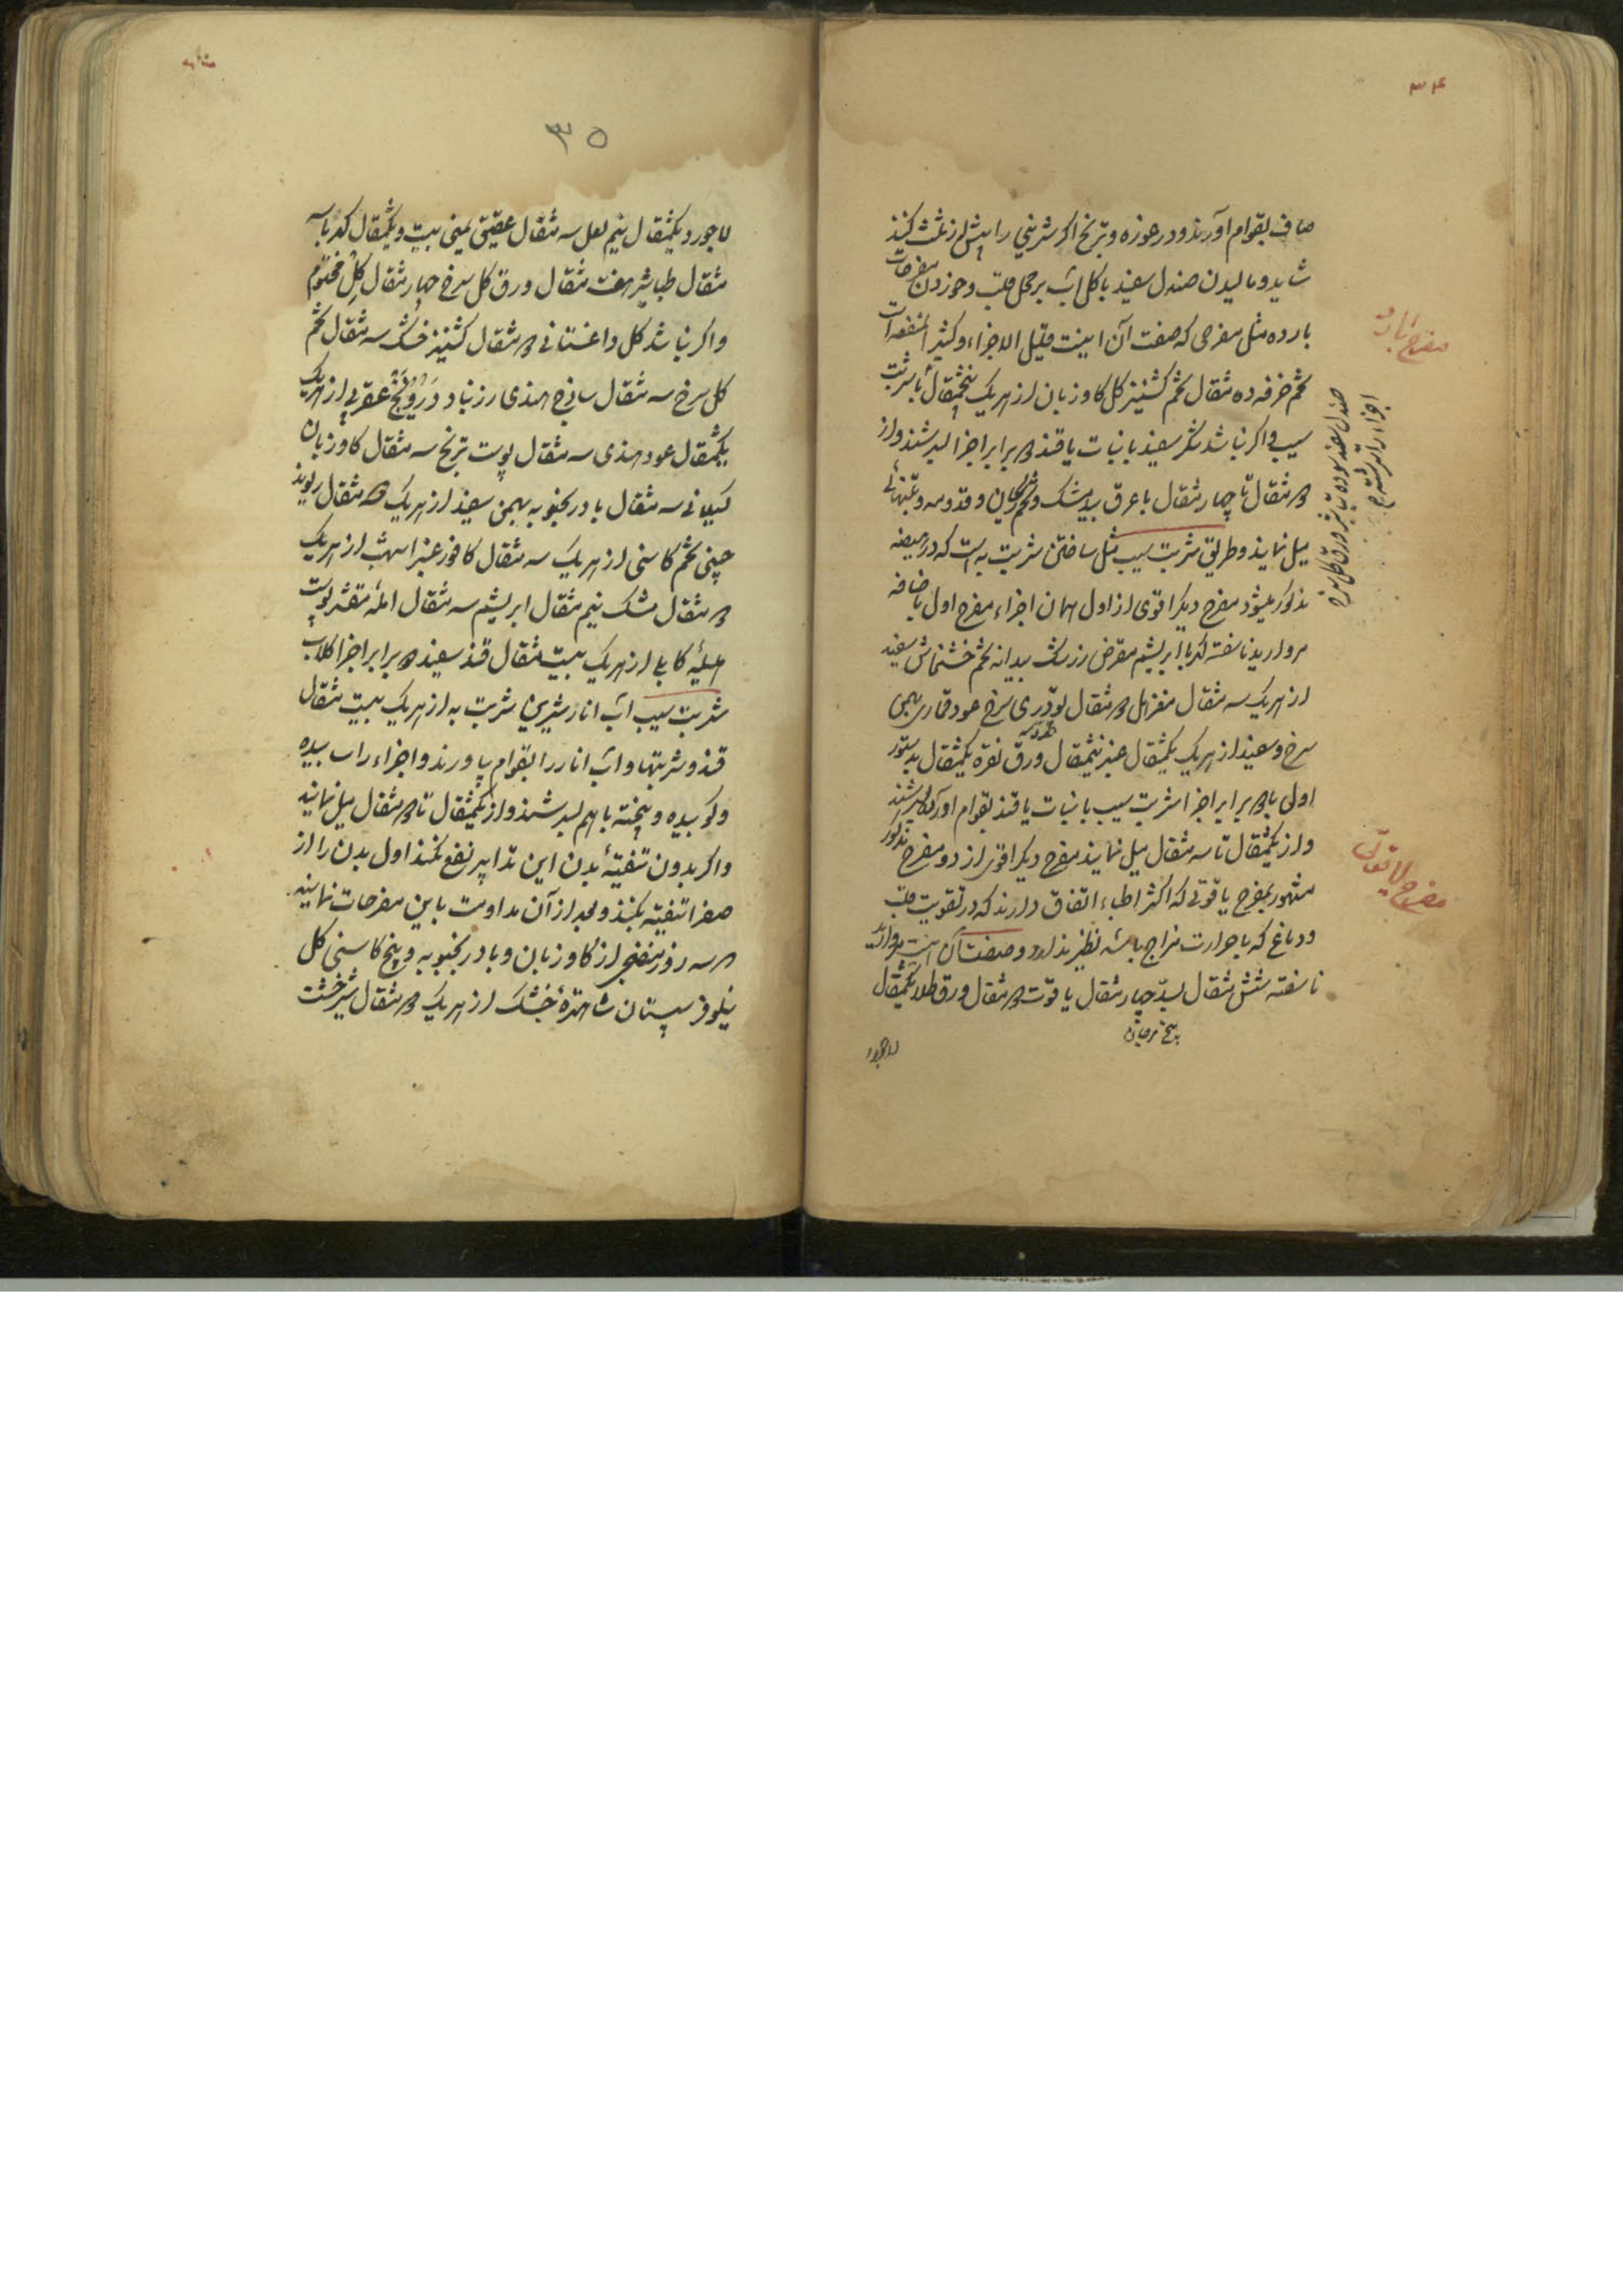 ۳۴
صاف بقوام آورند و در حوزه و ترنج اکر شیرینی را پیش از ثلث کنند
شاید و مالیدن صندل سفید با کلاب بر محل قلب و خوردن مفرحات
بارده مثل مفرحی که صفت آن اینست قلیل الاجزاء و کثیر المنفعة است
تخم خرفه ده مثقال تخم کشنیز کل کاوزبان از هر یک پنجمثقال با شربت
سیب و اکر نباشد شکر سفید یا نبات یا قند دو برابر اجزا بسرشند و از
دو مثقال تا چهار مثقال با عرق بیدمشک و تخم ریحان و قدومه و بتنهائی
میل نمایند و طریق شربت سیب مثل ساختن شربت به است که در هیضه
مذکور میشود مفرح دیکر اقوی از اول همان اجزاء مفرح اول باضافه
مروارید ناسفته کهربا ابریشم مقرض زرشک بیدانه تخم خشخاش سفید
از هر یک سه مثقال دو مثقال تودری سرخ عود قماری بهمن
سرخ و سفید از هر یک یکمثقال عنبر نیمثقال ورق نقره یکمثقال بدستور
اولی با دو برابر اجزا شربت سیب یا نبات یا قند بقوام آورده بسرشند
و از یکمثقال تا سه مثقال میل نمایند مفرح دیکر اقوی از دو مفرح مذکور
مشهور بمفرح یاقوتی که اکثر اطباء اتفاق دارند که در تقویت قلب
و دماغ که با حرارت مزاج باشد نظیر ندارد و صفت آن اینست مروارید
ناسفته شش مثقال بسد چهار مثقال یاقوت دو مثقال ورق طلا یکمثقال
بیخ مرجان
لاجورد
مفرح بارد
صندل سفید سوده طباشیر ورق کل سرخ
اجزاء را
مفرح یاقوتی
۳۵
لاجورد یکمثقال نیم لعل سه مثقال عقیق یمنی بیست و یکمثقال کهربا سه
مثقال طباشیر هفت مثقال ورق کل سرخ چهار مثقال کل مختوم
و اکر نباشد کل داغستانی دو مثقال کشنیز خشک سه مثقال تخم
کل سرخ سه مثقال ساذج هندی زرنباد درونج عقربی از هر یک
یکمثقال عود هندی سه مثقال پوست ترنج سه مثقال کاوزبان
کیلانی سه مثقال بادرنجبویه بهمن سفید از هر یک دو مثقال ریوند
چینی تخم کاسنی از هر یک سه مثقال کافور عنبر اشهب از هر یک
دو مثقال مشک نیم مثقال ابریشم سه مثقال آمله مقشر پوست
هلیله کابلی از هر یک بیست مثقال قند سفید دو برابر اجزا کلاب
شربت سیب آب انار شیرین شربت به از هر یک بیست مثقال
قند و شربتها و آب انار را بقوام بیاورند و اجزاء را سائیده
و کوبیده و بیخته با هم بسرشند و از یکمثقال تا دو مثقال میل نمایند
و اکر بدون تنقیهٔ بدن این تدابیر نفع نکند اول بدن را از
صفرا تنقیه بکنند و بعد از آن مداومت باین مفرحات نمایند
دو سه روز منضج از کاوزبان و بادرنجبویه و بیخ کاسنی کل
نیلوفر سپستان شاهترهٔ خشک از هر یک دو مثقال شیرخشت